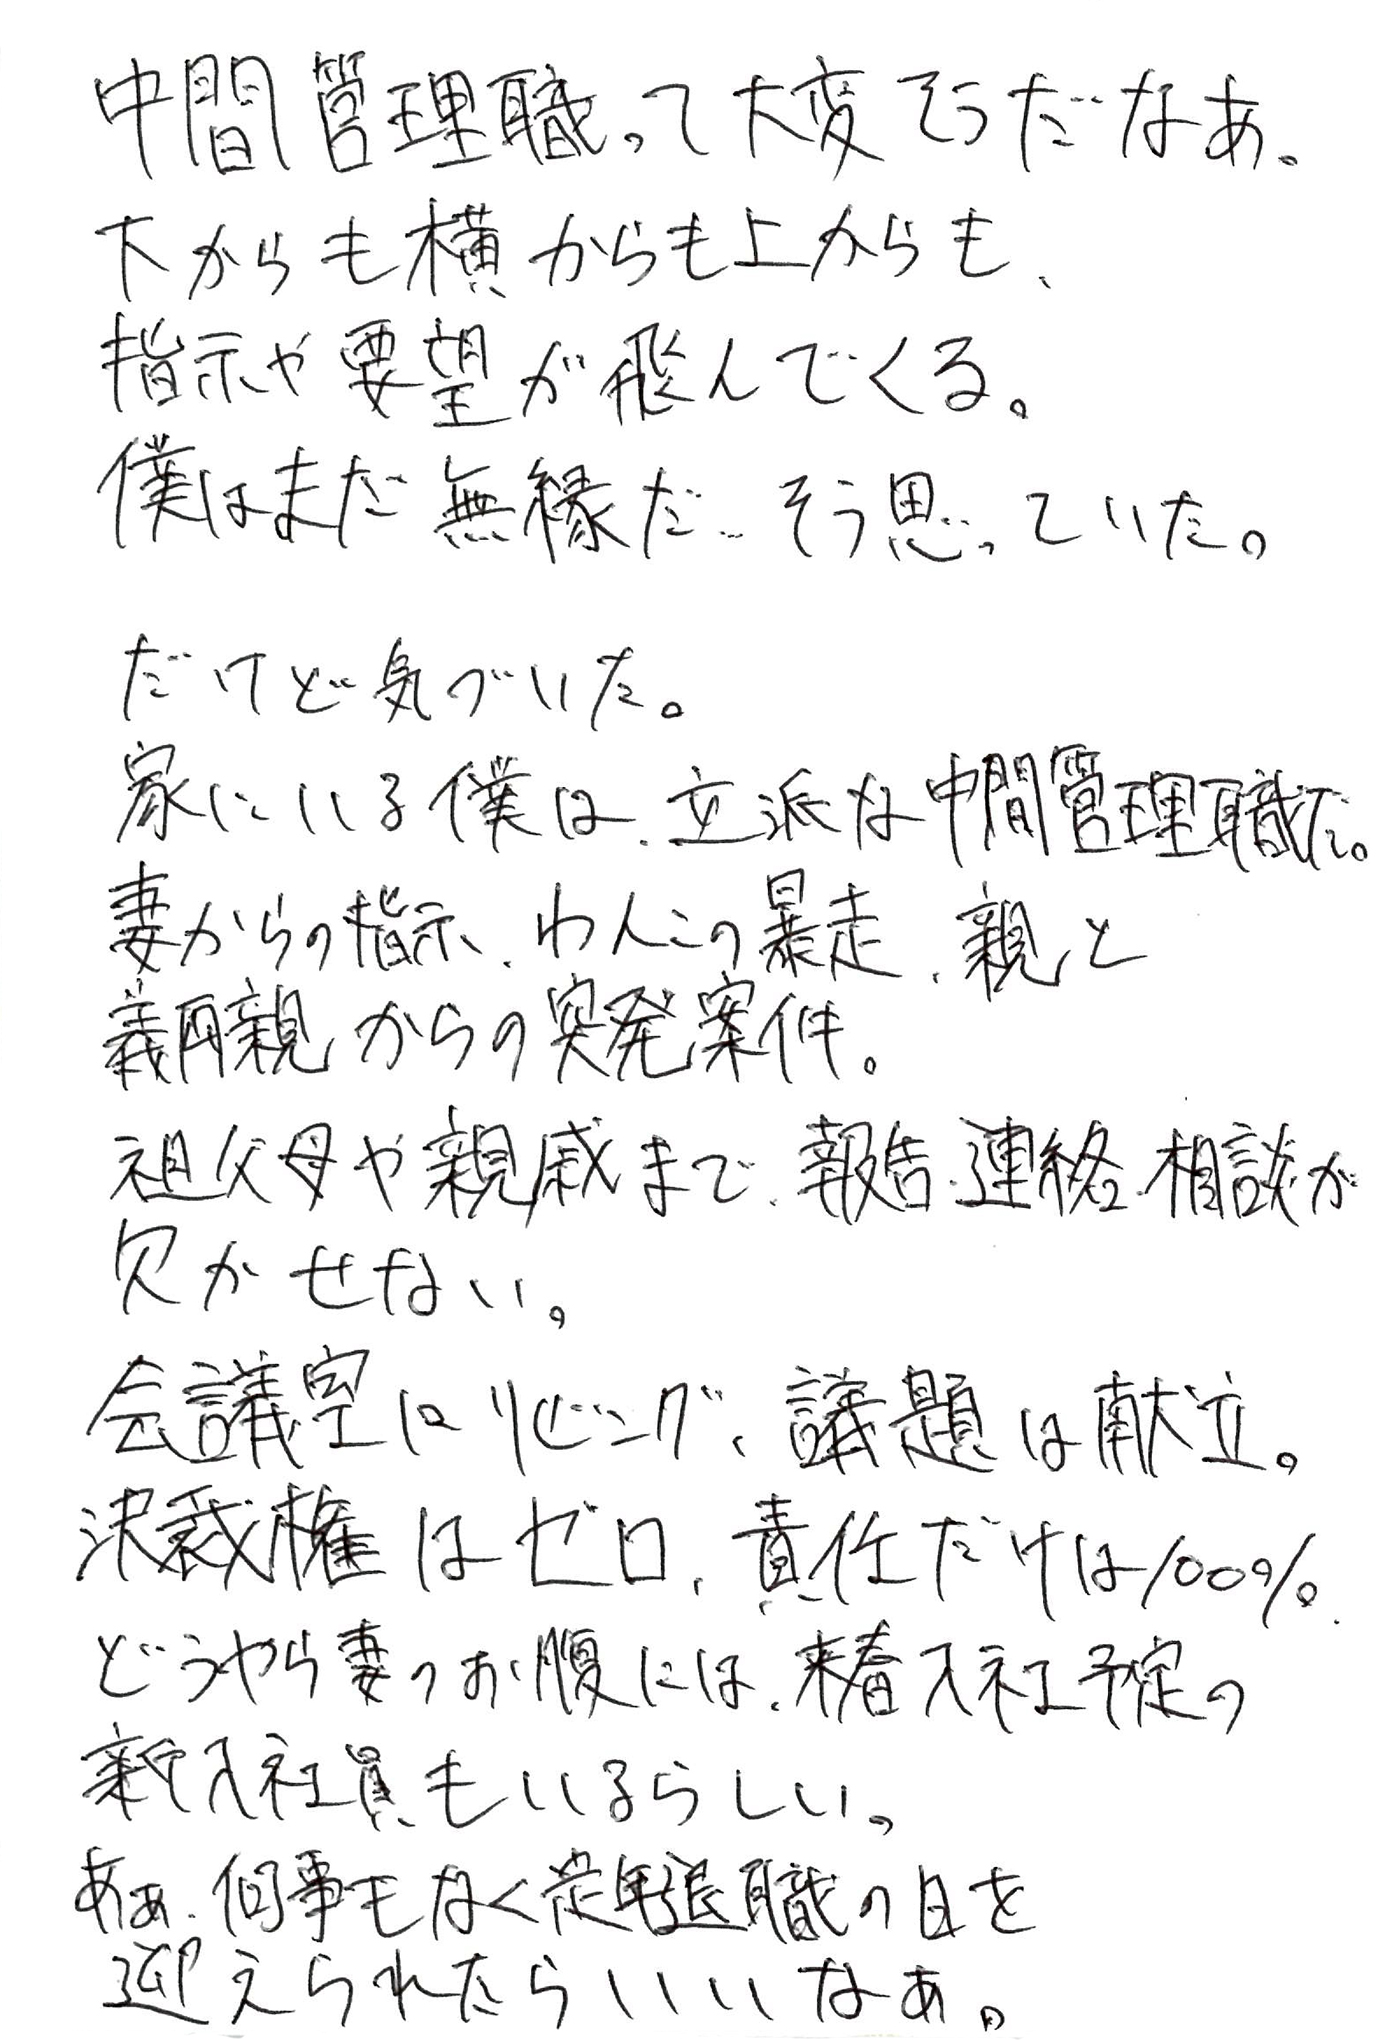 中間管理職って大変そうだなあ。
下からも横からも上からも、
指示や要望が飛んでくる。
僕はまだ無縁だ…そう思っていた。
だけど気づいた。
家にいる僕は、立派な中間管理職だ。
妻からの指示、わんこの暴走、親と
義両親からの突発案件。
祖父母や親戚まで、報告・連絡・相談が
欠かせない。
会議室はリビング、議題は献立。
決裁権はゼロ、責任だけは100%。
どうやら妻のお腹には、来春入社予定の
新入社員もいるらしい。
あぁ、何事もなく定年退職の日を
迎えられたらいいなぁ。